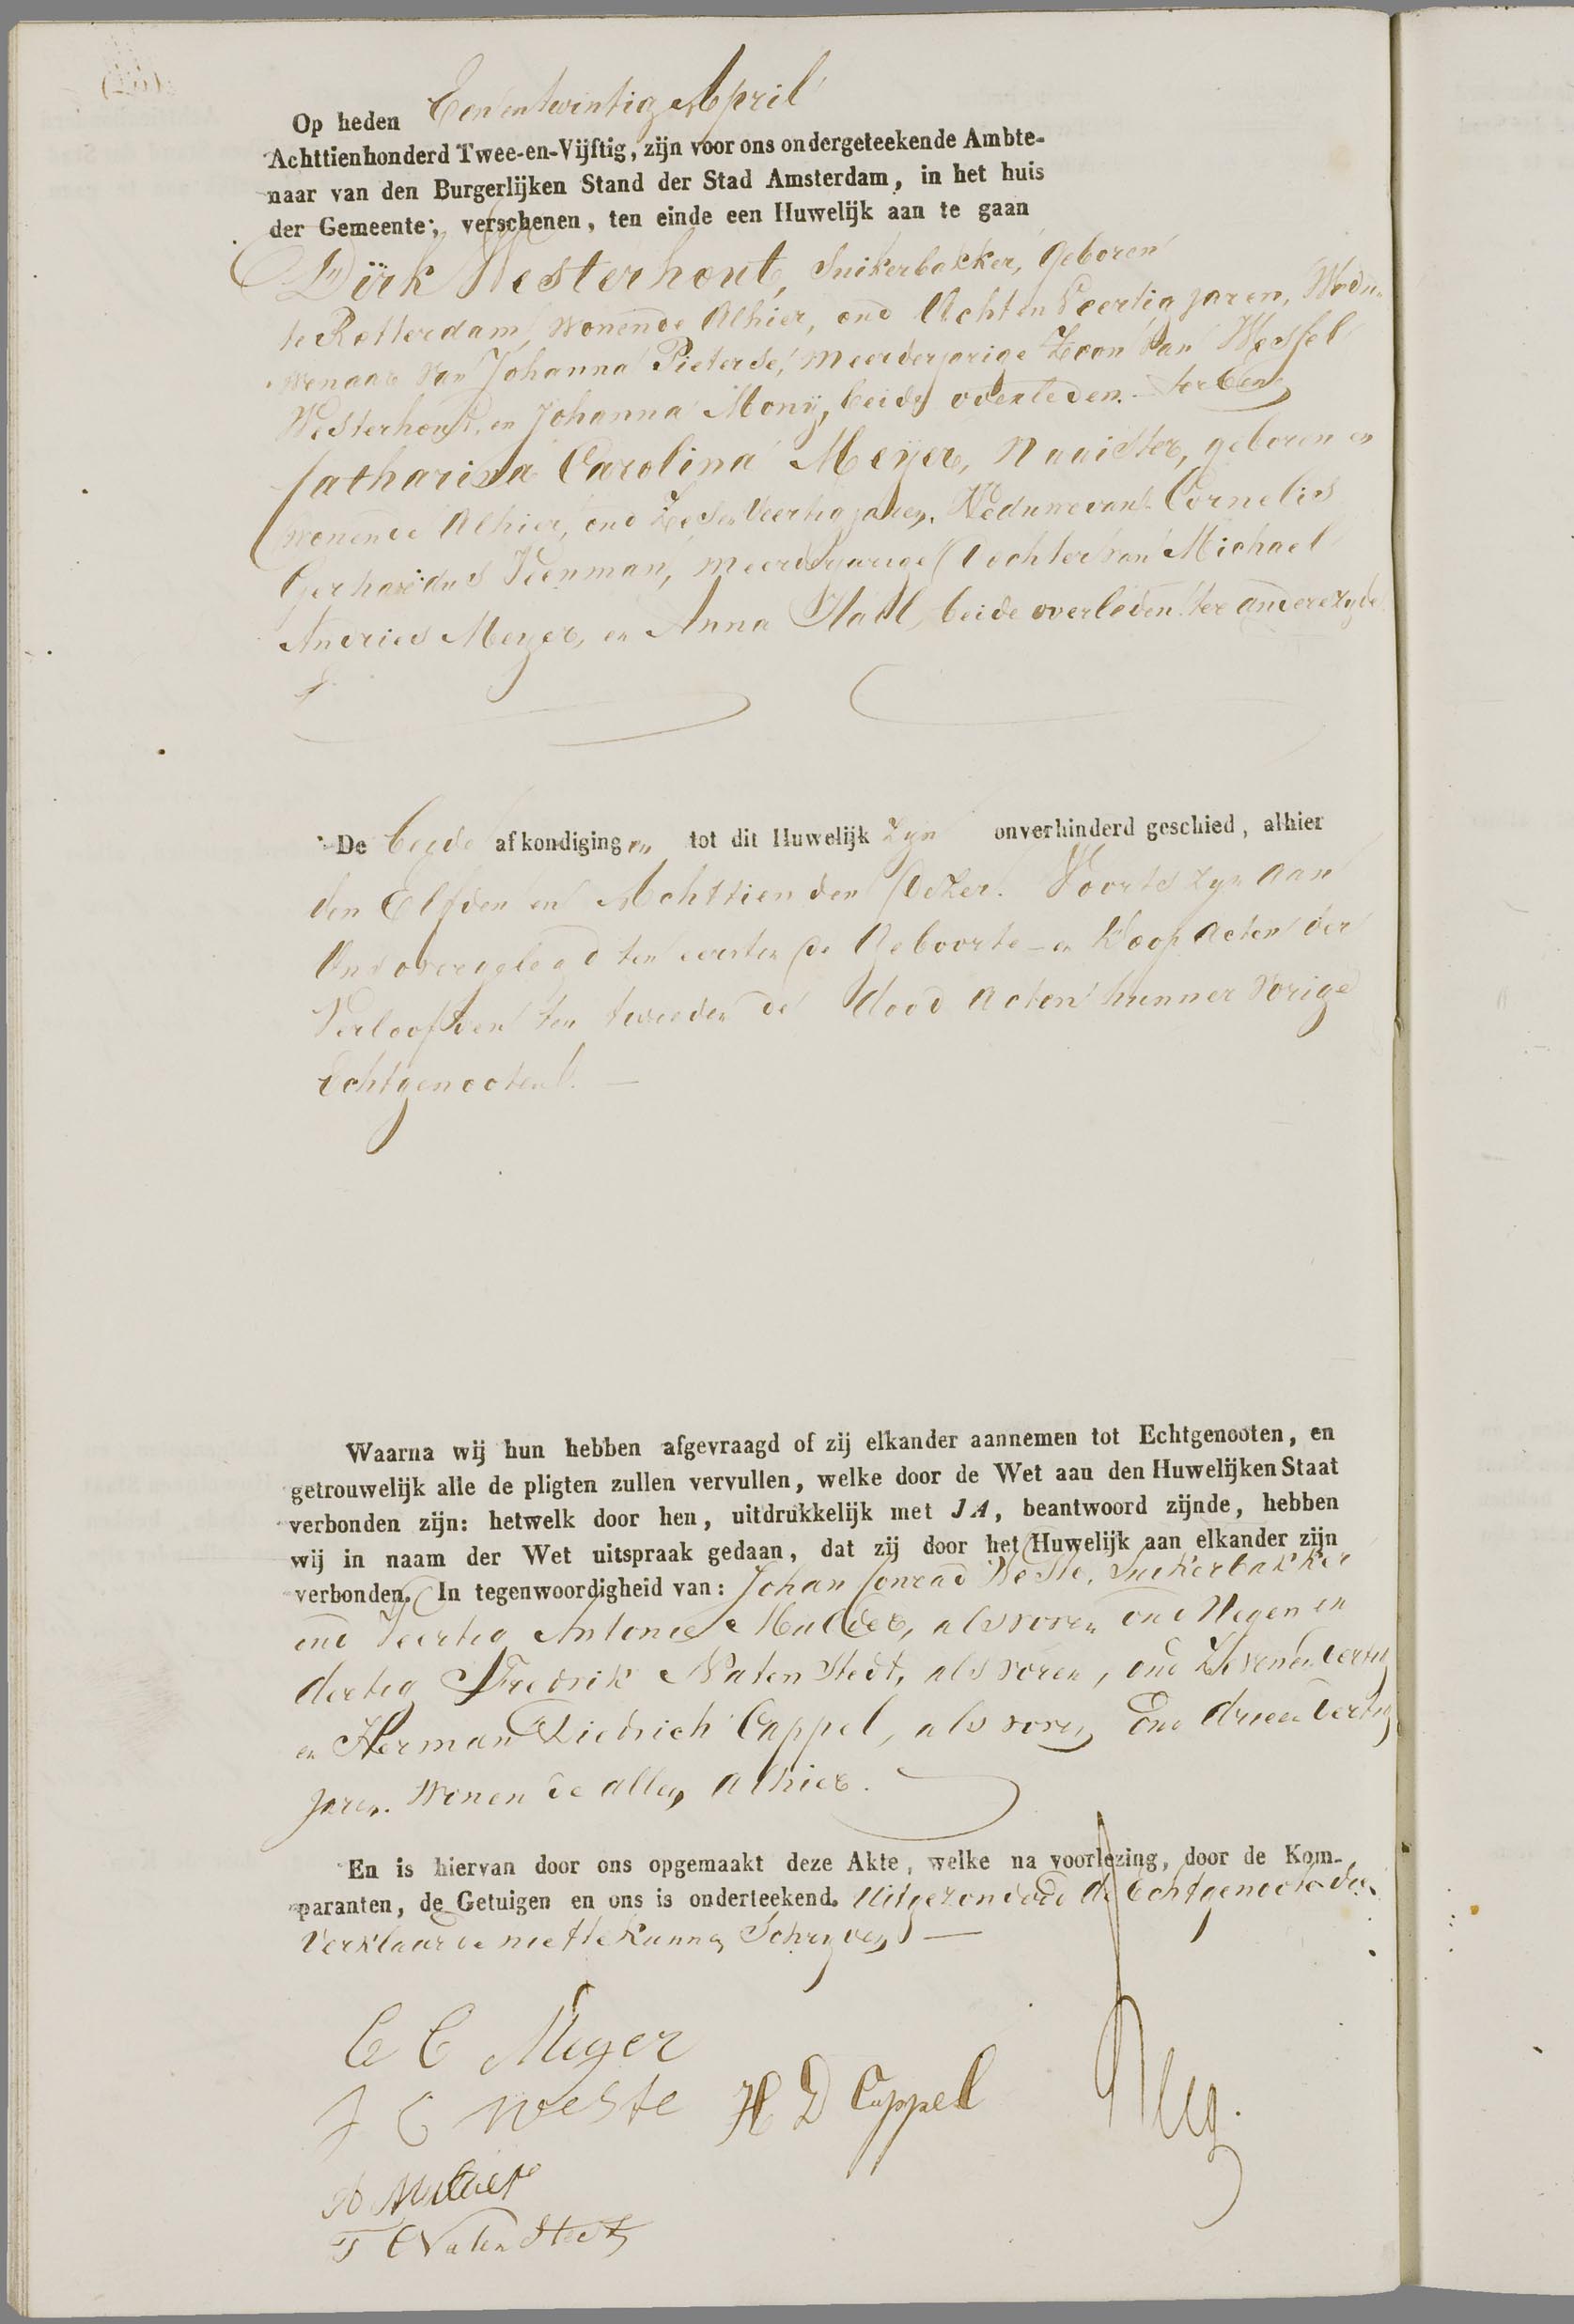 Op heden Een en twintig April
Achttienhonderd Twee-en-Vijftig, zijn voor ons ondergeteekende Ambte-
naar van den Burgerlijken Stand der Stad Amsterdam, in het huis
der Gemeente, verschenen, ten einde een Huwelijk aan te gaan
Dirk Westerhout, Suikerbakker, geboren
te Rotterdam, wonende Alhier, oud Acht en Veertig jaren, Wedu-
wenaar van Johanna Pieterse, meerderjarige Zoon van Wessel
Westerhout, en Johanna Monij, beide overleden. ter Eene
Catharina Carolina Meijer, Naaister, geboren en
wonende Alhier, oud Zes en Veertig jaren, Weduwe van Cornelis
Gerhardus Veenman, meerderjarige Dochter van Michael
Andries Meyer, en Anna Stall, beide overleden ter andere zyde
De beide afkondigingen tot dit Huwelijk zyn onverhinderd geschied, alhier
den Elfden en Achttienden Dezer. Voorts zyn aan
Ons overgelegd ten eersten de Geboorte- en Doop Acten der
Verloofden ten tweeden de Dood Acten hunner vorige
Echtgenooten.
Waarna wij hun hebben afgevraagd of zij elkander aannemen tot Echtgenooten, en
getrouwelijk alle de pligten zullen vervullen, welke door de Wet aan den Huwelijken Staat
verbonden zijn: hetwelk door hen, uitdrukkelijk met JA, beantwoord zijnde, hebben
wij in naam der Wet uitspraak gedaan, dat zij door het Huwelijk aan elkander zijn
verbonden. In tegenwoordigheid van: Johan Conrad Weste, Suikerbakker
oud Veertig Antonie Mulder, als voren oud Negen en
dertig Fredrik Natenstedt, als voren, oud Zeven en veertig
en Herman Diedrich Cappel, als voren oud drie en veertig
jaren. Wonende allen Alhier.
En is hiervan door ons opgemaakt deze Akte, welke na voorlezing, door de Kom-
paranten, de Getuigen en ons is onderteekend. Uitgezonderd de Echtgenoot die
Verklaarde niet te kunnen Schryven
C C Meyer
J C Weste H D Cappel
A Mulder
F Natenstedt